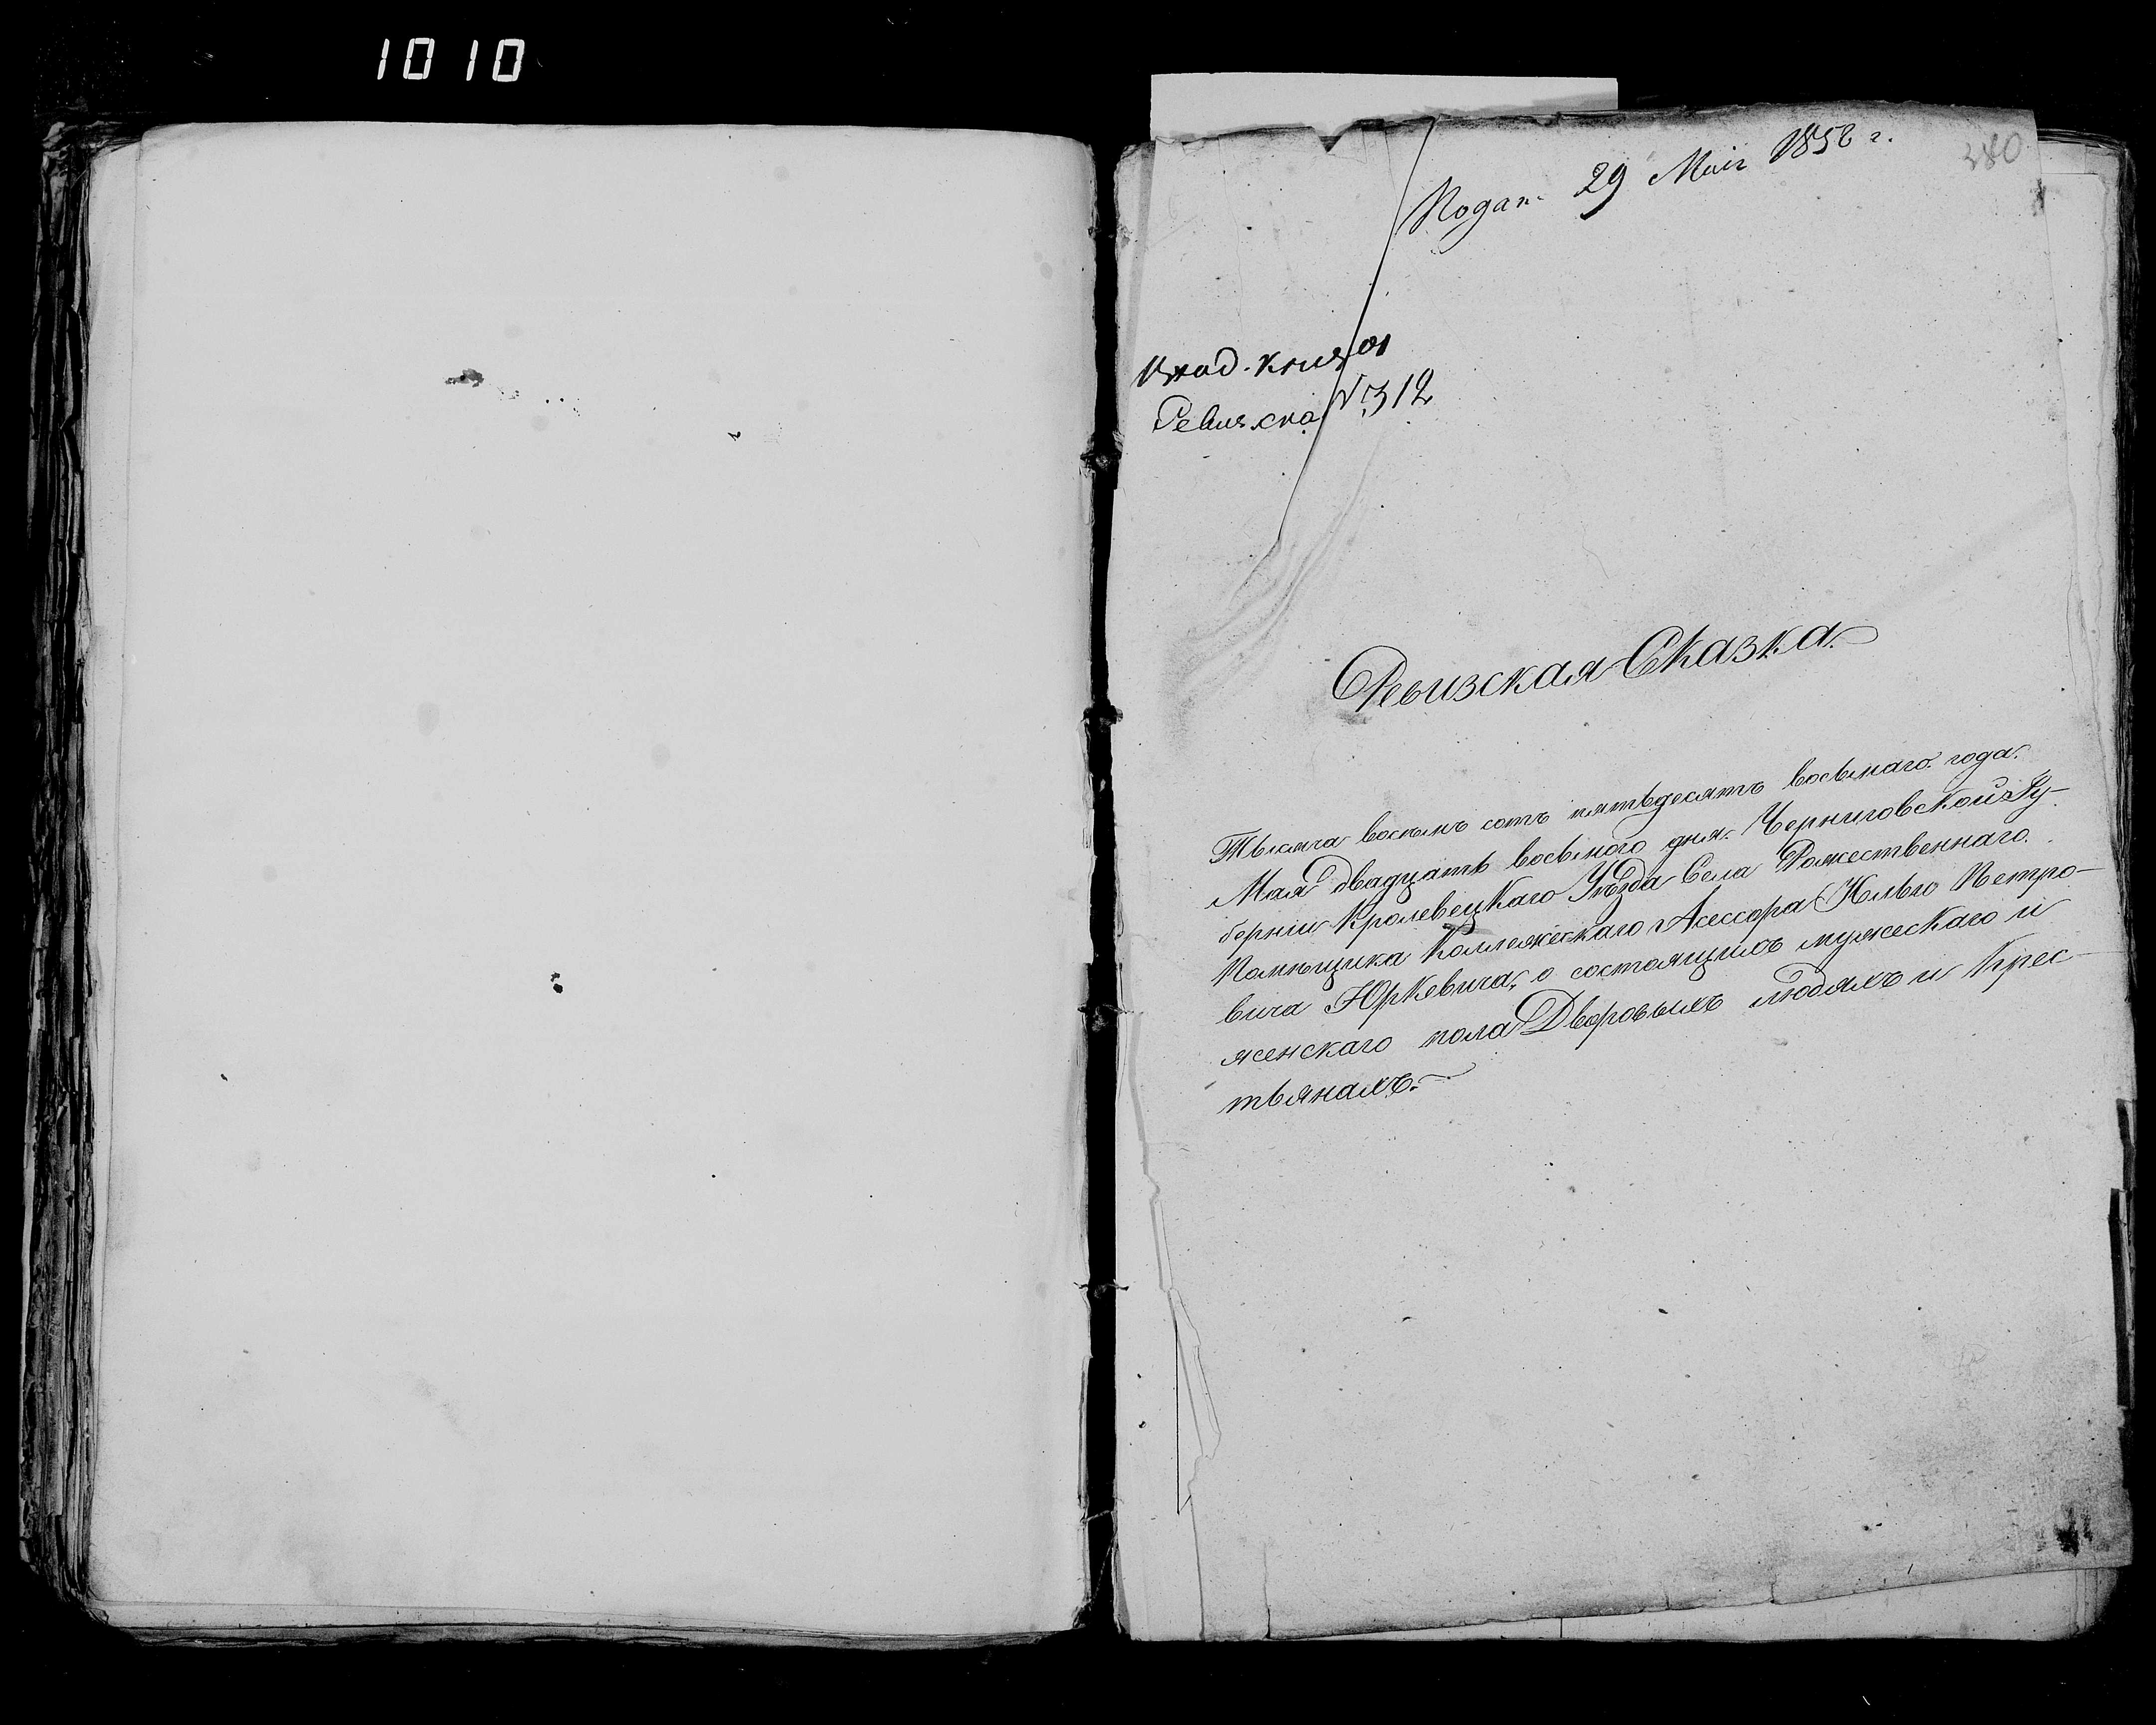 1010
380
Подан. 29 Маія 1858 г.
Вход. книга
Ревизска. №312
Ревизская Сказка.
Тысяча восемь сотъ пятьдесятъ восьмаго года.
Мая двадцать восьмого дня. Черниговской Гу-
берніи Кролевецкаго Уѣзда Села Рожественнаго.
Помѣщика Коллежскаго Асессора Юлія Петро-
вича Юркевича, о состоящихъ мужескаго и
женскаго пола Дворовыхъ людяхъ и Крес-
тьянахъ.